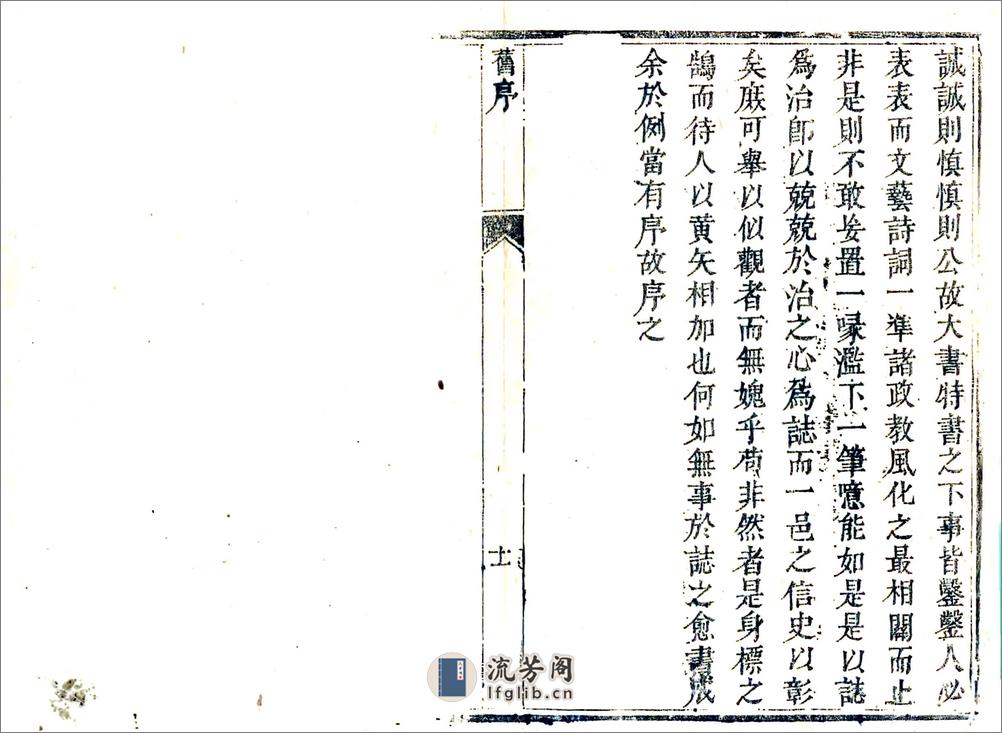 誠誠則愼愼則公故大書特書之下事皆鑿鑿人必
表表而文藝詩詞一準諸政教風化之最相關而止
非是則不敢妄置一喙濫下一筆噫能如是是以誌
爲治卽以兢兢於治之心爲誌而一邑之信史以彰
矣庶可舉以似觀者而無媿乎苟非然者是身標之
鵠而待人以黄矢相加也何如無事於誌之愈書成
余於例當有序故序之
舊序
十一
流芳阁
lfglib.cn